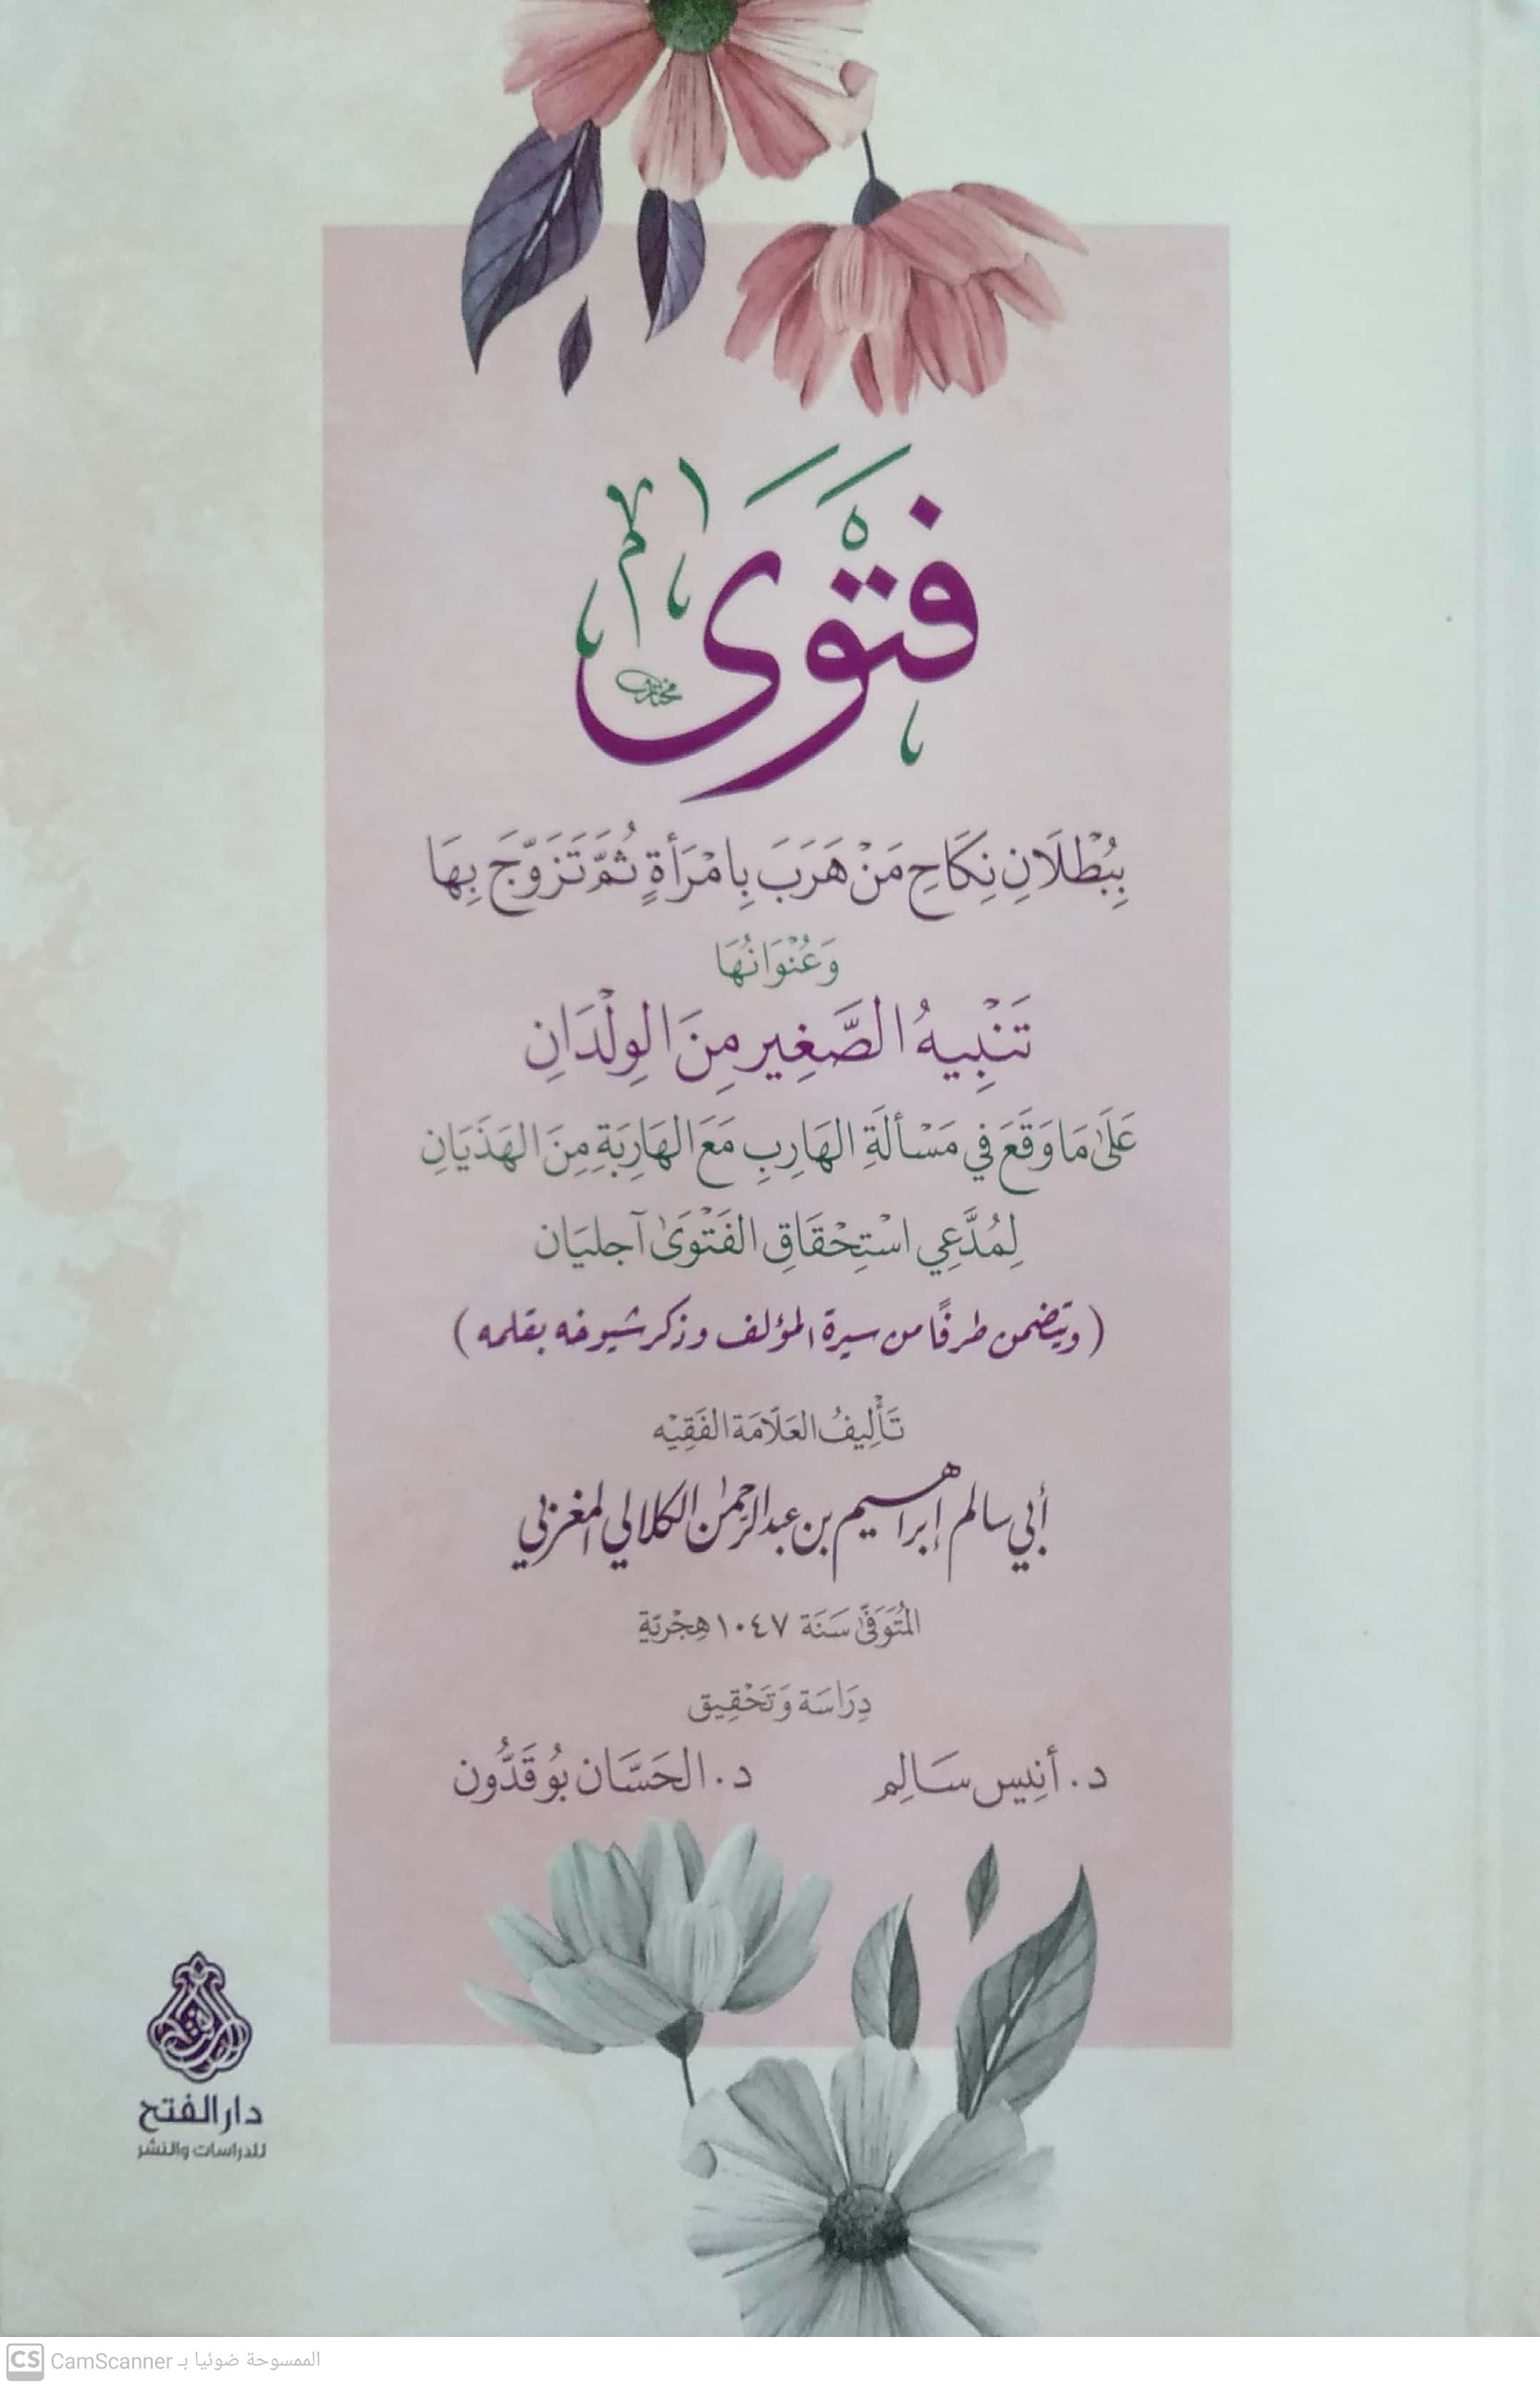 فَتْوَى
بِبُطْلَانِ نِكَاحِ مَنْ هَرَبَ بِامْرَأَةٍ ثُمَّ تَزَوَّجَ بِهَا
وَعُنْوَانُهَا
تَنْبِيهُ الصَّغِيرِ مِنَ الوِلْدَانِ
عَلَىٰ مَا وَقَعَ فِي مَسْأَلَةِ الهَارِبِ مَعَ الهَارِبَةِ مِنَ الهَذَيَانِ
لِمُدَّعِي اسْتِحْقَاقِ الفَتْوَىٰ آجليَان
(ويتضمن طرفًا من سيرة المؤلف وذكر شيوخه بقلمه)
تَأْلِيفُ العَلَّامَة الفَقِيْه
أبي سالم إبراهيم بن عبد الرحمٰن الكلالي المغربي
المُتَوَفَّىٰ سَنَة ١٠٤٧ هِجْرِيَّةٍ
دِرَاسَة وَتَحْقِيق
د. أَنِيس سَالِم د. الحَسَّان بُوقَدُّون
دار الفتح
للدراسات والنشر
CS CamScanner الممسوحة ضوئيا بـ